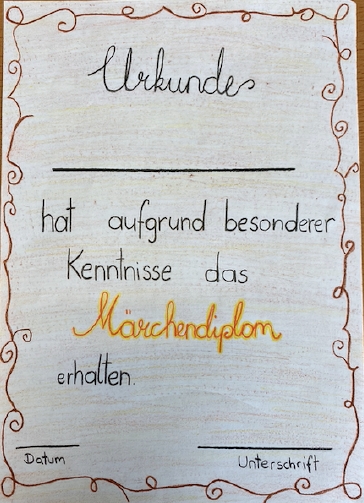 Urkunde
hat aufgrund besonderer
Kenntnisse das
Märchendiplom
erhalten.
Datum Unterschrift